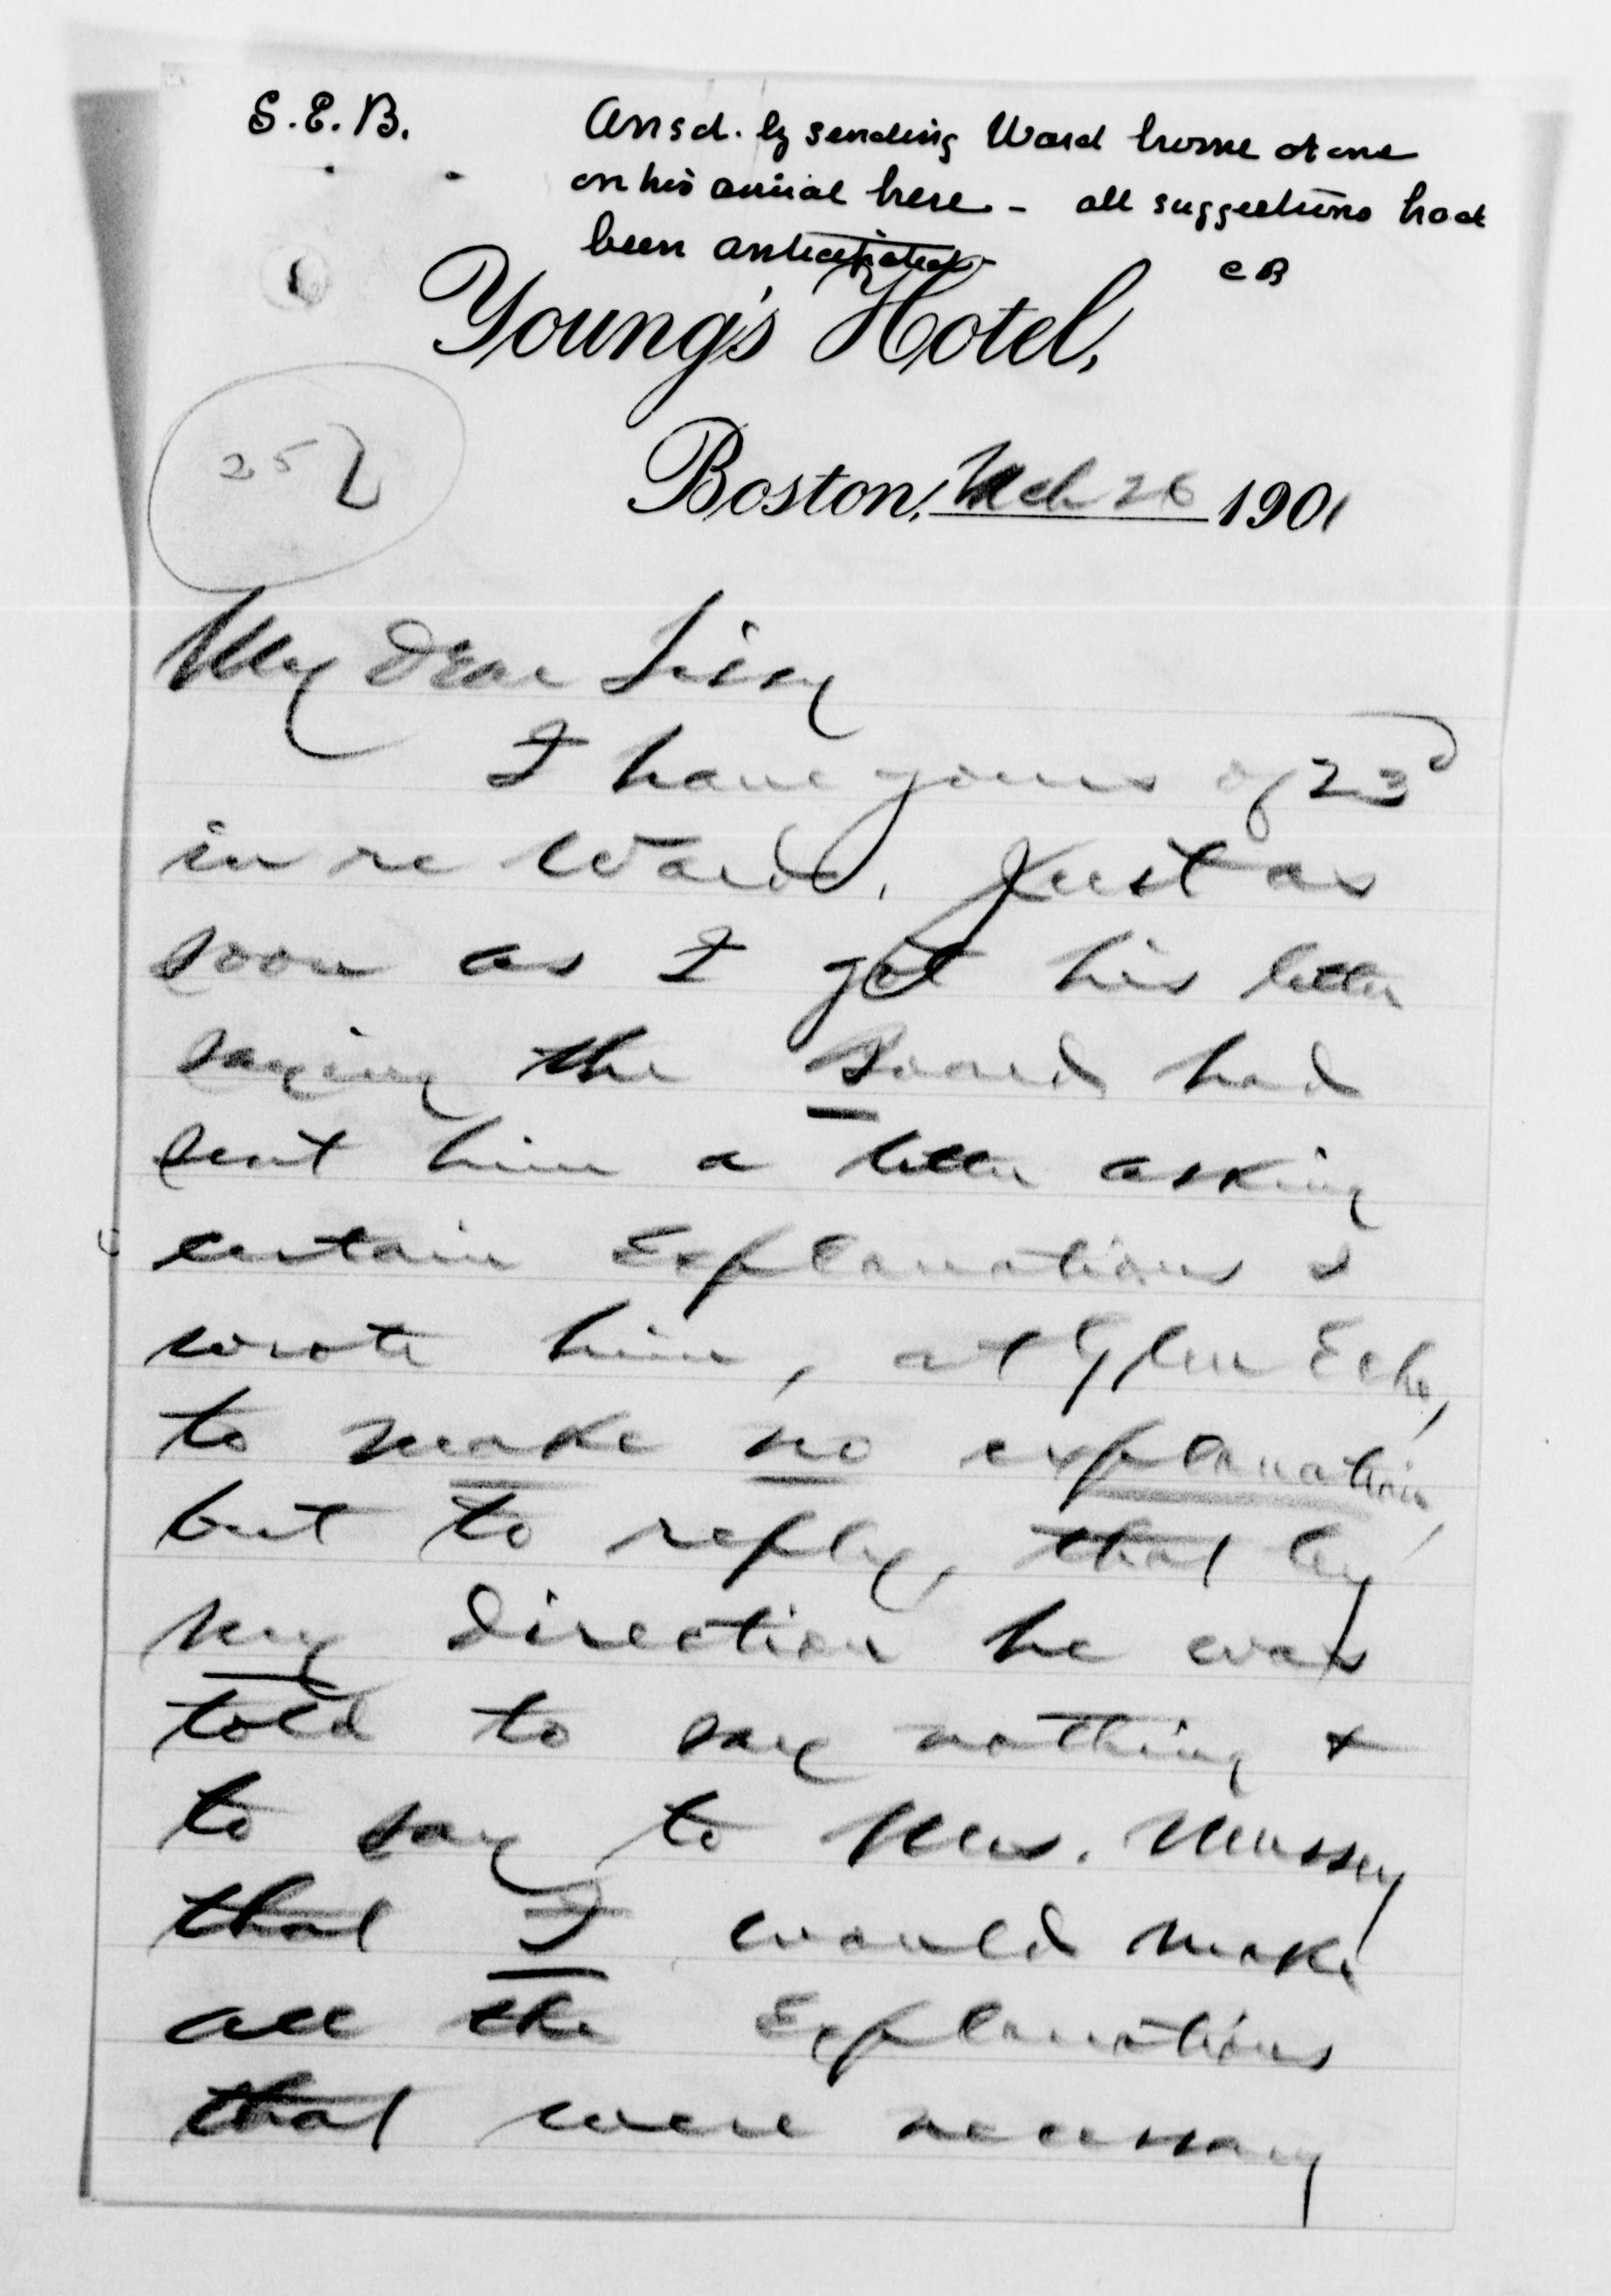 S.E.B.
Ansd. by sending Ward home at once
on his arrival here - all suggestions had
been anticipated -
CB
Young's Hotel,
252
Boston, Mch 26 1901
My Dear Sissy
I have yours of 23d
in re Ward. Just as
soon as I got his letter
saying the Board had
sent him a letter asking
certain Explanations I
wrote him, at Glen Echo,
to make no explanation,
but to reply, that by
my direction he was
told to say nothing &
to say to Mrs. Mussey
that I would make
all the Explanations
that were necessary